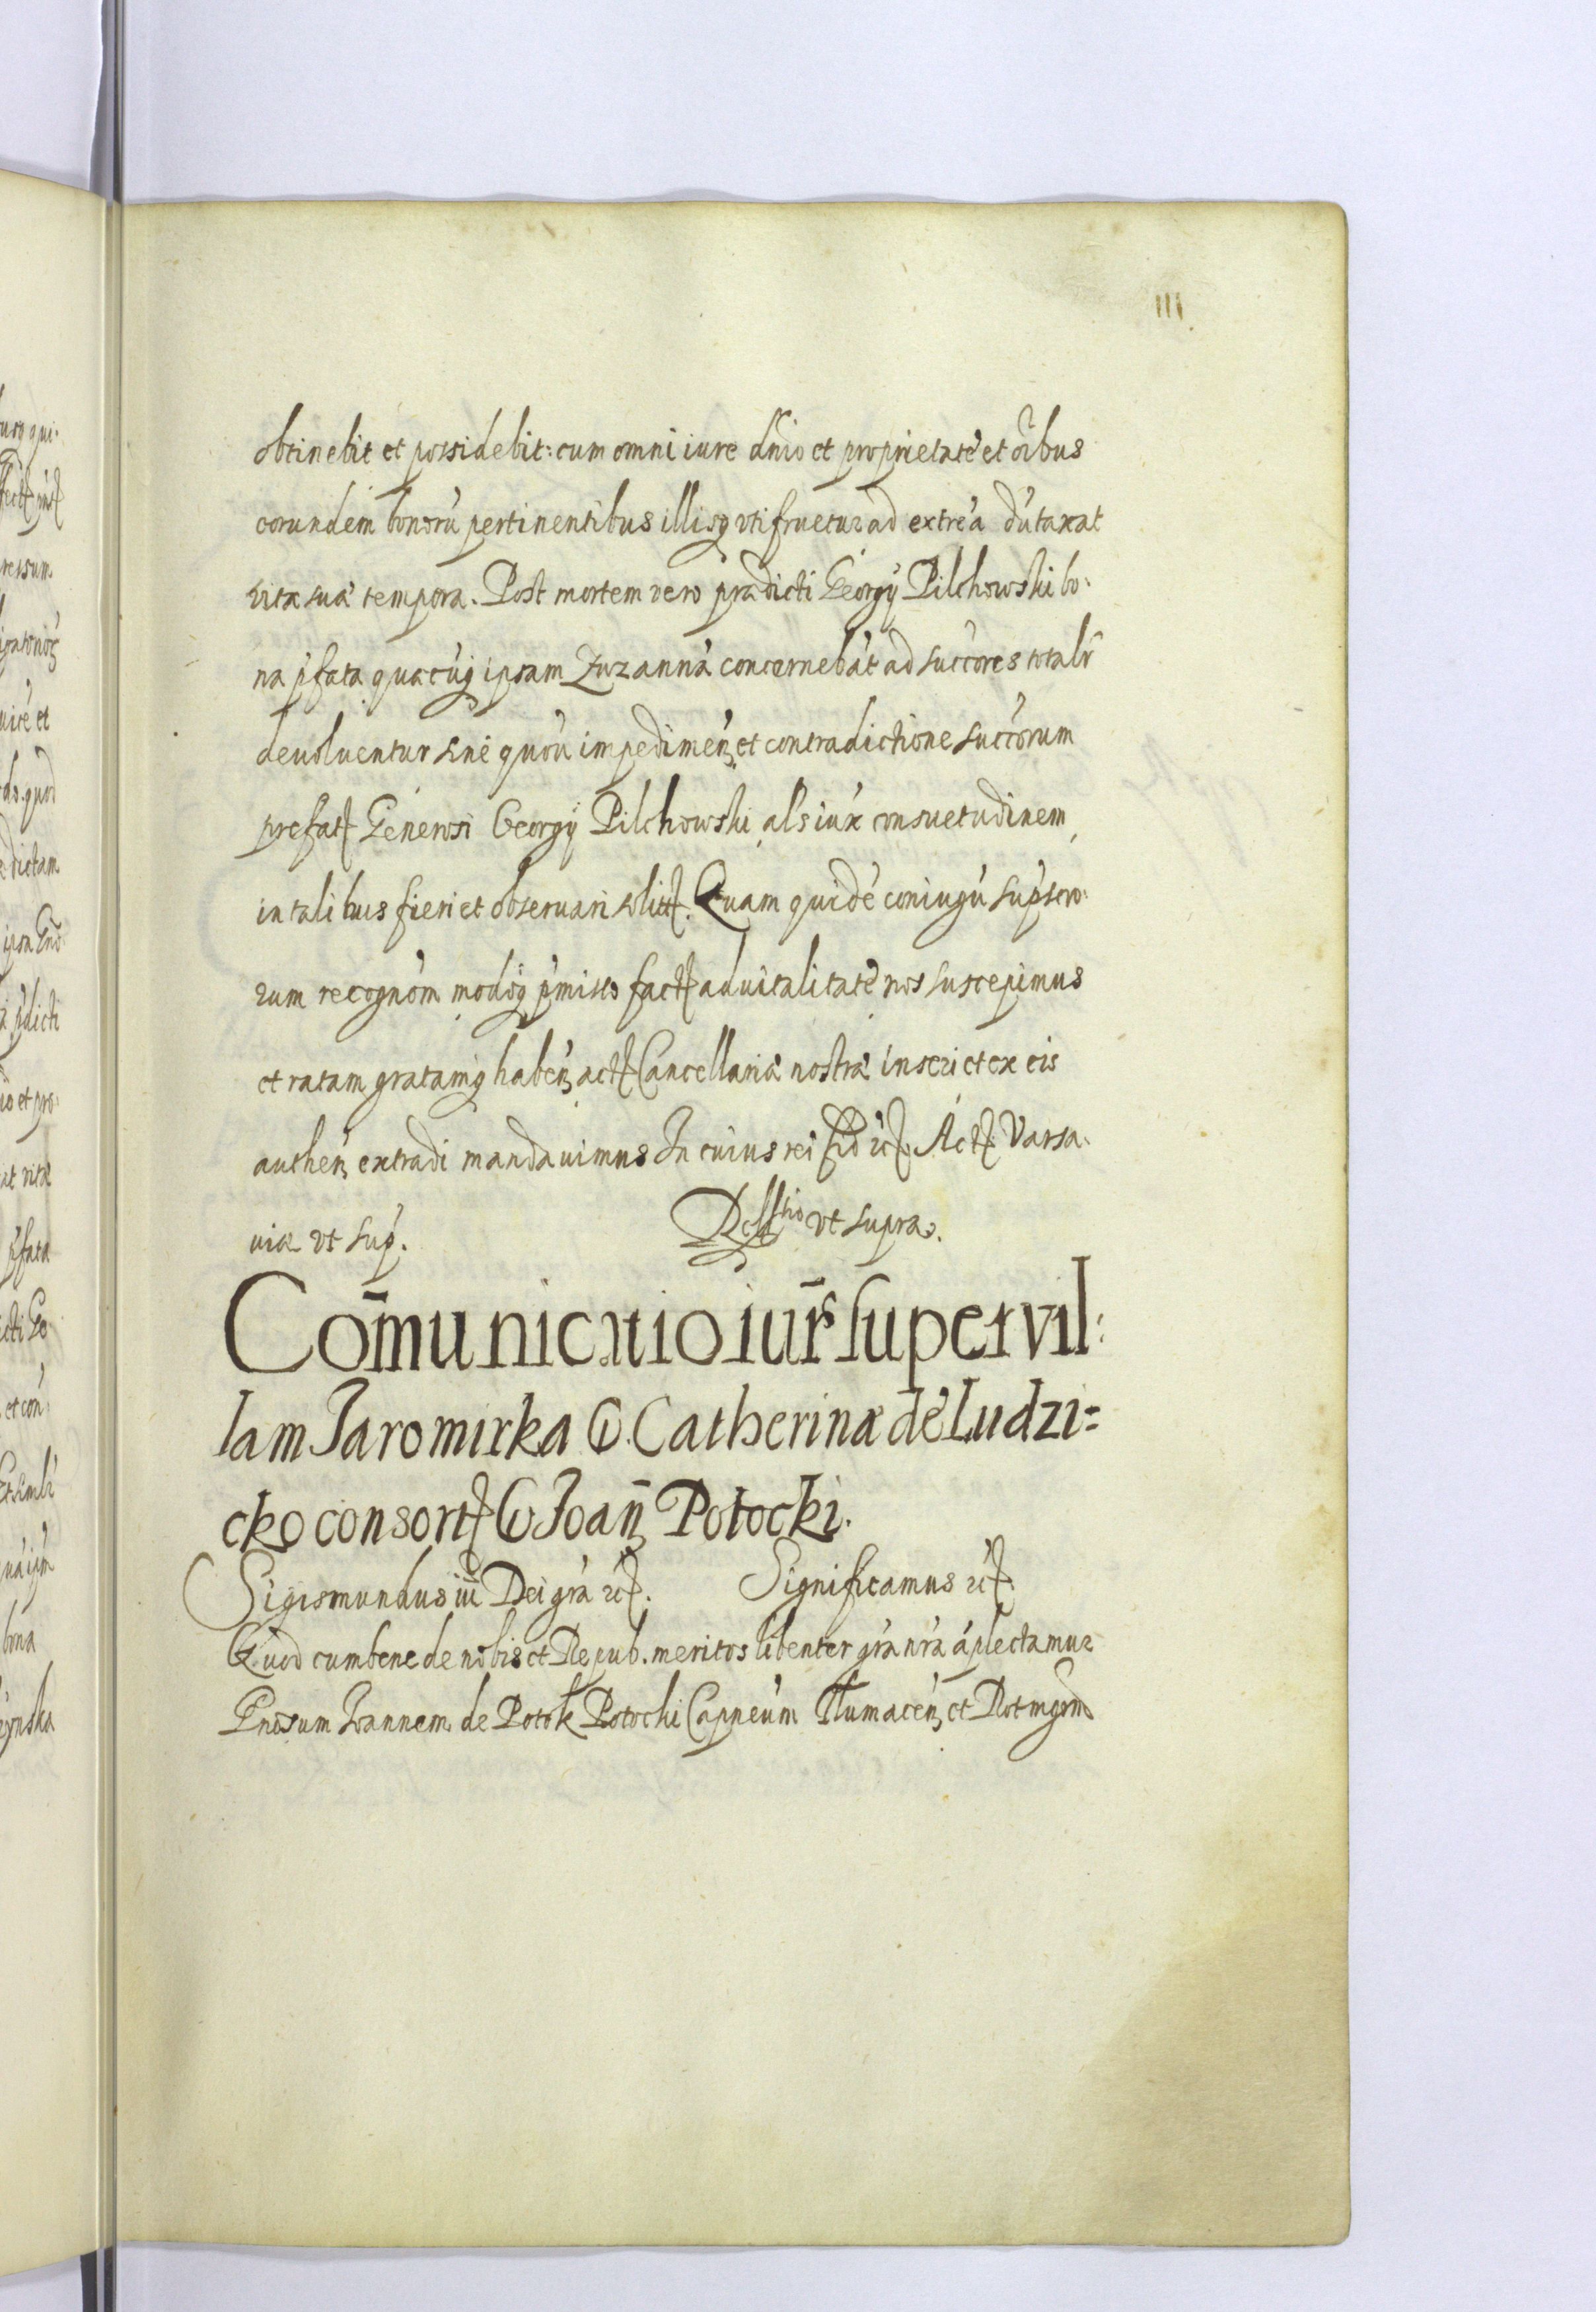 111.
obtinebit et possidebit: cum omni iure dnio et proprietate et oibus
eorundem bonorũ pertinentibus illisq utifruetur ad extrea dutaxat
vitæ suæ tempora. Post mortem vero prædicti Georgÿ Pilchowski bo:
na pfata quacuq ipsam Zuzannã concernebãt ad succores totalr
devoluentur sine quou impedimen et contradictione succorum
prefat Generosi Georgÿ Pilchowski, als iux consuetudinem
in talibus fieri et observari solit. Quam quidẽ coniugũ supscro:
rum recognom modoq pmisso fact advitalitatẽ nos suscepimus
et ratam gratamq haben act Cancellariæ nostræ inseri et ex eis
authen extradi mandavimus In cuius rei fid etc. Act Varsa:
viæ vt sup.
vt supra.
Cõmunicatio iuris super vil:
lam Jaromirka G. Catherinæ de Ludzi=
cko consort G Joan Potocki.
Sigismundus iii Dei gra etc. Significamus etc.
Quod cum bene de nobis et Repub. meritos libenter gra nra aplectamur
Gnosum Joannem de Potok Potocki Capneum Tlumacen et Rotmgrm